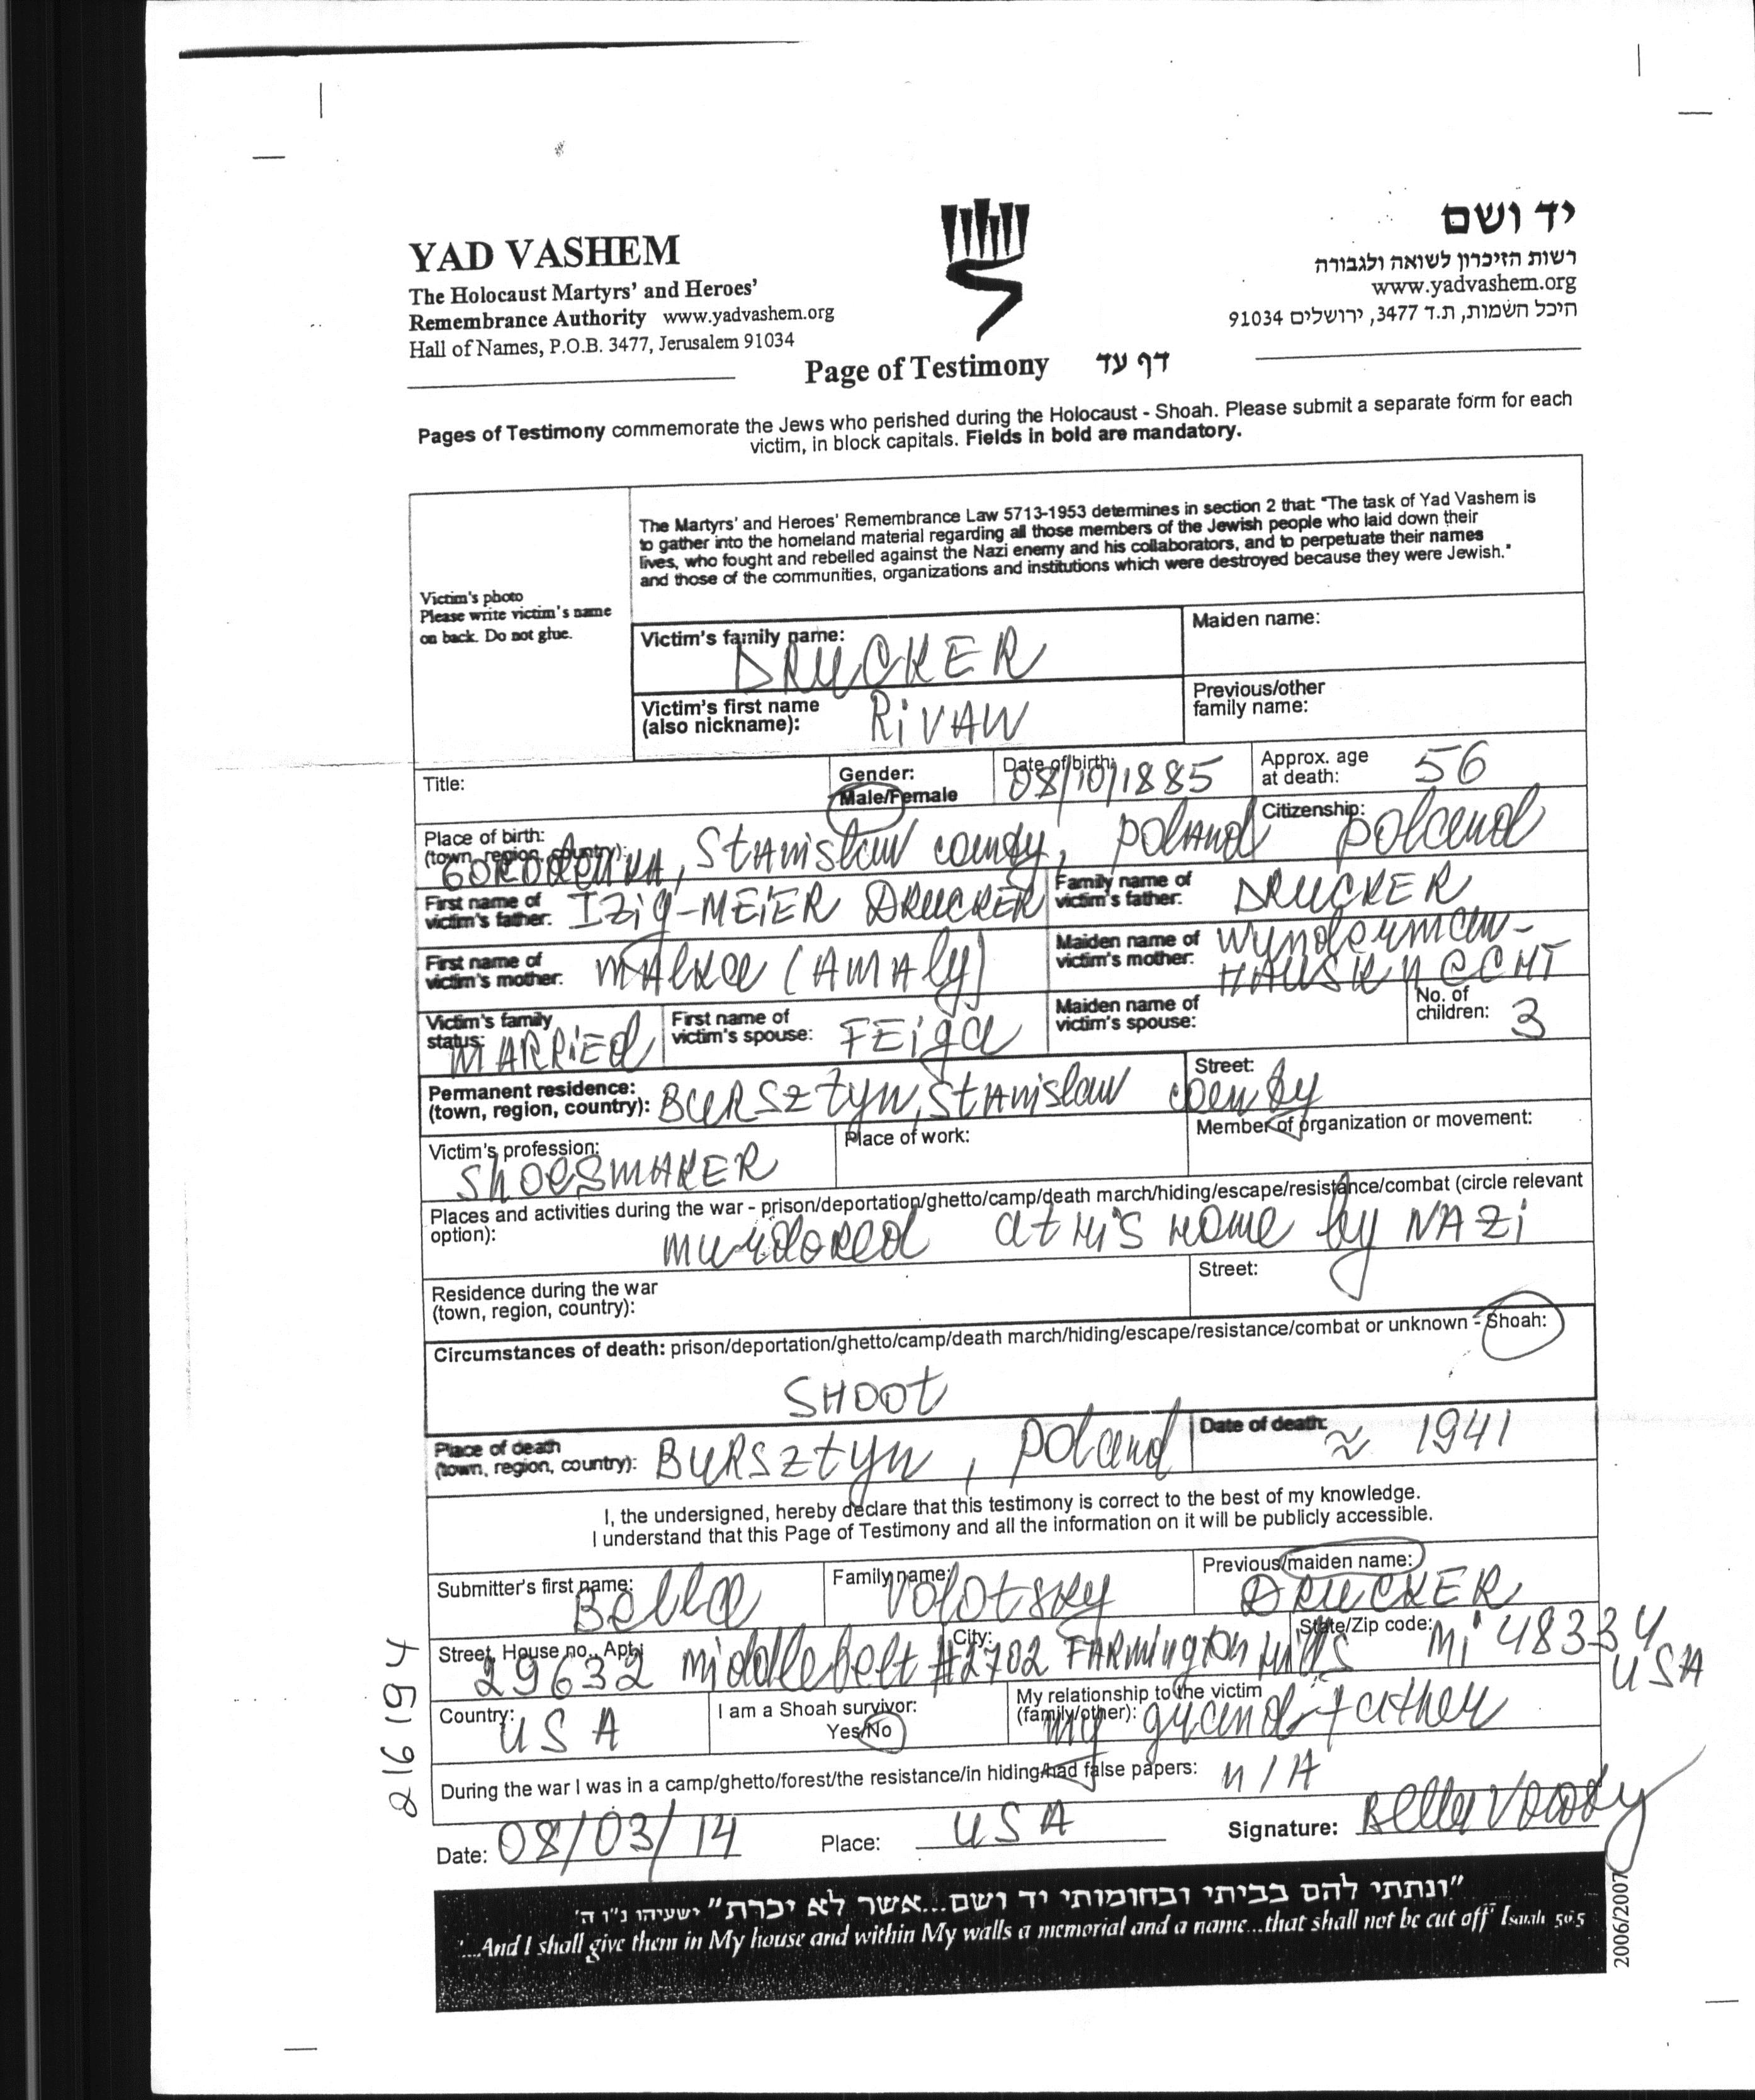 YAD VASHEM
The Holocaust Martyrs' and Heroes'
Remembrance Authority www.yadvashem.org
Hall of Names, P.O.B. 3477, Jerusalem 91034
יד ושם
רשות הזיכרון לשואה ולגבורה
www.yadvashem.org
היכל השמות, ת.ד 3477, ירושלים 91034
Page of Testimony דף עד
Pages of Testimony commemorate the Jews who perished during the Holocaust - Shoah. Please submit a separate form for each
victim, in block capitals. Fields in bold are mandatory.
The Martyrs' and Heroes' Remembrance Law 5713-1953 determines in section 2 that: "The task of Yad Vashem is
to gather into the homeland material regarding all those members of the Jewish people who laid down their
lives, who fought and rebelled against the Nazi enemy and his collaborators, and to perpetuate their names
and those of the communities, organizations and institutions which were destroyed because they were Jewish."
Victim's photo
Please write victim's name
on back. Do not glue.
Victim's family name: DRUCKER
Maiden name:
Victim's first name
(also nickname): RiVAN
Previous/other
family name:
Title:
Gender:
Male/Female
Date of birth: 08/10/1885
Approx. age
at death: 56
Place of birth:
(town, region, country): GORODENKA, Stanislaw county, Poland
Citizenship: Poland
First name of
victim's father: IZig-MEiER DRUCKER
Family name of
victim's father: DRUCKER
First name of
victim's mother: MAlka (AMAly)
Maiden name of
victim's mother: Wynderman-
HAUSKNECHT
Victim's family
status: MARRiEd
First name of
victim's spouse: FEiga
Maiden name of
victim's spouse:
No. of
children: 3
Permanent residence:
(town, region, country): BURSztyn, Stanislaw county
Street:
Victim's profession: ShOESMAKER
Place of work:
Member of organization or movement:
Places and activities during the war - prison/deportation/ghetto/camp/death march/hiding/escape/resistance/combat (circle relevant
option): murdored at his home by NAZi
Residence during the war
(town, region, country):
Street:
Circumstances of death: prison/deportation/ghetto/camp/death march/hiding/escape/resistance/combat or unknown - Shoah:
SHOOt
Place of death
(town, region, country): BURSztyn, Poland
Date of death: ≈ 1941
I, the undersigned, hereby declare that this testimony is correct to the best of my knowledge.
I understand that this Page of Testimony and all the information on it will be publicly accessible.
Submitter's first name: Bella
Family name: Volotsky
Previous/maiden name: DRUCKER
Street, House no., Apt.: 29632 Middlebelt #2702
City: FARmington Hills
State/Zip code: Mi 48334
USA
Country: USA
I am a Shoah survivor:
Yes/No
My relationship to the victim
(family/other): my grand-father
During the war I was in a camp/ghetto/forest/the resistance/in hiding/had false papers: N/A
Date: 08/03/14
Place: USA
Signature: Bella
"ונתתי להם בביתי ובחומותי יד ושם...אשר לא יכרת" ישעיהו נ"ו ה'
'...And I shall give them in My house and within My walls a memorial and a name...that shall not be cut off' Isaiah 56:5
2006/2007